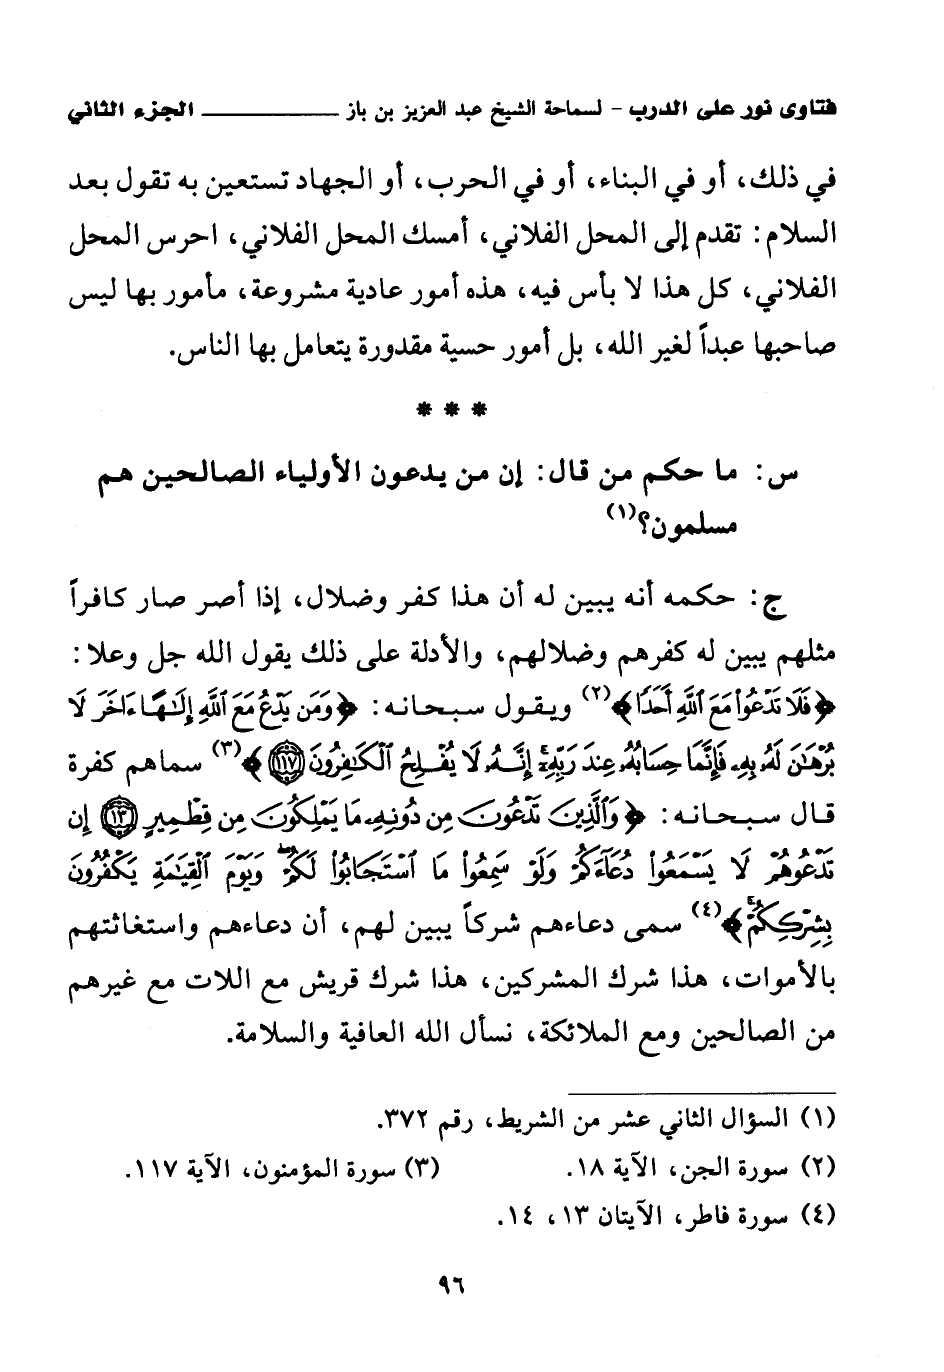 فتاوى نور على الدرب - لسماحة الشيخ عبد العزيز بن باز ــــــــــــ الجزء الثاني
في ذلك، أو في البناء، أو في الحرب، أو الجهاد تستعين به تقول بعد
السلام: تقدم إلى المحل الفلاني، أمسك المحل الفلاني، احرس المحل
الفلاني، كل هذا لا بأس فيه، هذه أمور عادية مشروعة، مأمور بها ليس
صاحبها عبداً لغير الله، بل أمور حسية مقدورة يتعامل بها الناس.
* * *
س: ما حكم من قال: إن من يدعون الأولياء الصالحين هم
مسلمون؟(١)
ج: حكمه أنه يبين له أن هذا كفر وضلال، إذا أصر صار كافراً
مثلهم يبين له كفرهم وضلالهم، والأدلة على ذلك يقول الله جل وعلا:
﴿فَلَا تَدْعُوا۟ مَعَ ٱللَّهِ أَحَدًا﴾(٢) ويقول سبحانه: ﴿وَمَن يَدْعُ مَعَ ٱللَّهِ إِلَٰهًا ءَاخَرَ لَا
بُرْهَٰنَ لَهُۥ بِهِۦ فَإِنَّمَا حِسَابُهُۥ عِندَ رَبِّهِۦٓ إِنَّهُۥ لَا يُفْلِحُ ٱلْكَٰفِرُونَ ۝١١٧﴾(٣) سماهم كفرة
قال سبحانه: ﴿وَٱلَّذِينَ تَدْعُونَ مِن دُونِهِۦ مَا يَمْلِكُونَ مِن قِطْمِيرٍ ۝١٣ إِن
تَدْعُوهُمْ لَا يَسْمَعُوا۟ دُعَآءَكُمْ وَلَوْ سَمِعُوا۟ مَا ٱسْتَجَابُوا۟ لَكُمْ ۖ وَيَوْمَ ٱلْقِيَٰمَةِ يَكْفُرُونَ
بِشِرْكِكُمْ ۚ﴾(٤) سمى دعاءهم شركاً يبين لهم، أن دعاءهم واستغاثتهم
بالأموات، هذا شرك المشركين، هذا شرك قريش مع اللات مع غيرهم
من الصالحين ومع الملائكة، نسأل الله العافية والسلامة.
(١) السؤال الثاني عشر من الشريط، رقم ٣٧٢.
(٢) سورة الجن، الآية ١٨. (٣) سورة المؤمنون، الآية ١١٧.
(٤) سورة فاطر، الآيتان ١٣، ١٤.
٩٦